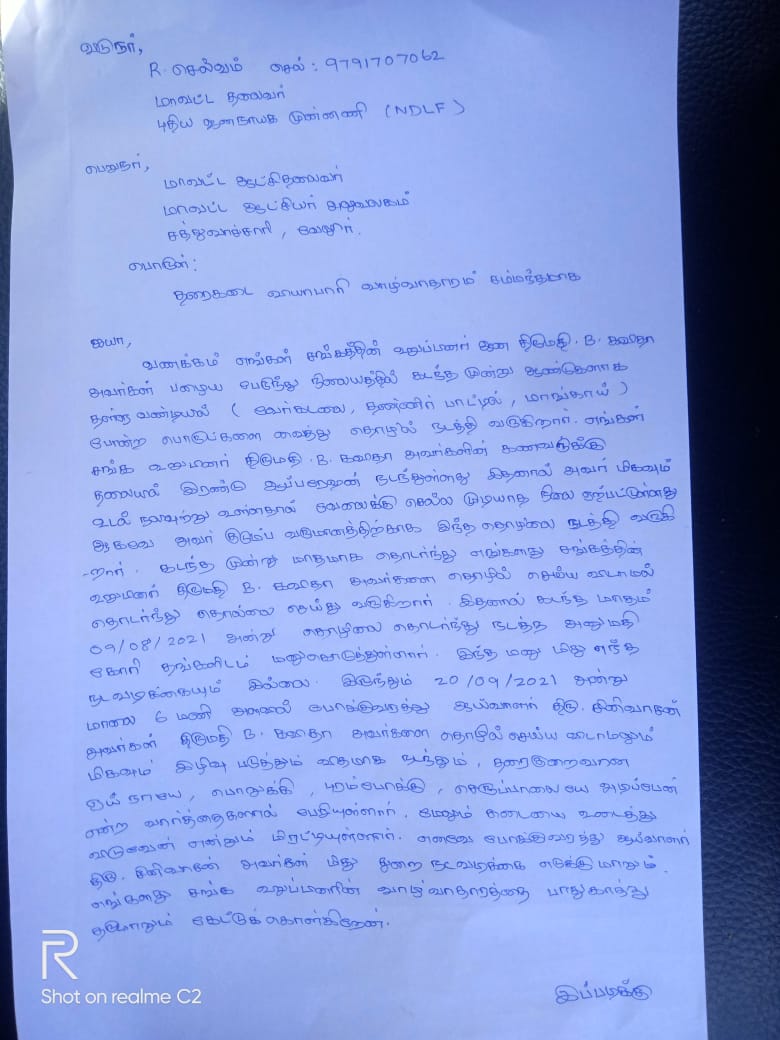 விடுநர்,
R. செல்வம் செல் : 9791707062
மாவட்ட தலைவர்
புதிய ஜனநாயக முன்னணி (NDLF)
பெறுநர்,
மாவட்ட ஆட்சிதலைவர்
மாவட்ட ஆட்சியர் அலுவலகம்
சத்துவாச்சாரி, வேலூர்.
பொருள் :
தரைகடை வியாபாரி வாழ்வாதாரம் சம்மந்தமாக
ஐயா,
வணக்கம் எங்கள் சங்கத்தின் உறுப்பினர் ஆன திருமதி. B. கவிதா
அவர்கள் பழைய பேருந்து நிலையத்தில் கடந்த மூன்று ஆண்டுகளாக
தள்ளு வண்டியில் ( வேர்கடலை, தண்ணிர் பாட்டில், மாங்காய் )
போன்ற பொருட்களை வைத்து தொழில் நடத்தி வருகிறார். எங்கள்
சங்க உறுமினர் திருமதி. B. கவிதா அவர்களின் கணவருக்கு
தலையில் இரண்டு ஆப்பரேஷன் நடந்துள்ளது இதனால் அவர் மிகவும்
உடல் நலவுற்று உள்ளதால் வேலைக்கு செல்ல முடியாத நிலை ஏற்பட்டுள்ளது
ஆகவே அவர் குடும்ப வருமானத்திற்காக இந்த தொழிலை நடத்தி வருகி
-றார். கடந்த மூன்று மாதமாக தொடர்ந்து எங்களது சங்கத்தின்
உறுமினர் திருமதி B. கவிதா அவர்களை தொழில் செய்ய விடாமல்
தொடர்ந்து தொல்லை செய்து வருகிறார். இதனால் கடந்த மாதம்
09/08/2021 அன்று தொழிலை தொடர்ந்து நடத்த அனுமதி
கோரி தங்களிடம் மனுகொடுத்துள்ளார். இந்த மனு மிது எந்த
நடவழக்கையும் இல்லை. இருந்தும் 20/09/2021 அன்று
மாலை 6 மணி அளவில் போக்குவரத்து ஆய்வாளர் திரு. சினிவாசன்
அவர்கள் திருமதி B. கவிதா அவர்களை தொழில் செய்ய விடாமலும்
மிகவும் இழிவு படுத்தும் விதமாக நடந்தும், தரைகுறைவான
ஏய் நாயே, பொறுக்கி, புறம்போக்கு, செருப்பாலையே அடிப்பேன்
என்ற வார்த்தைகளால் பேசியுள்ளார். மேலும் கடையை உடைத்து
விடுவேன் என்றும் மிரட்டியுள்ளார். எனவே போக்குவரத்து ஆய்வாளர்
திரு. சினிவாசன் அவர்கள் மிது துறை நடவழக்கை எடுக்குமாறும்.
எங்களது சங்க உறுப்பினரின் வாழ்வாதாரத்தை பாதுகாத்து
தருமாறும் கேட்டுக் கொள்கிறேன்.
இப்படிக்கு
R
Shot on realme C2